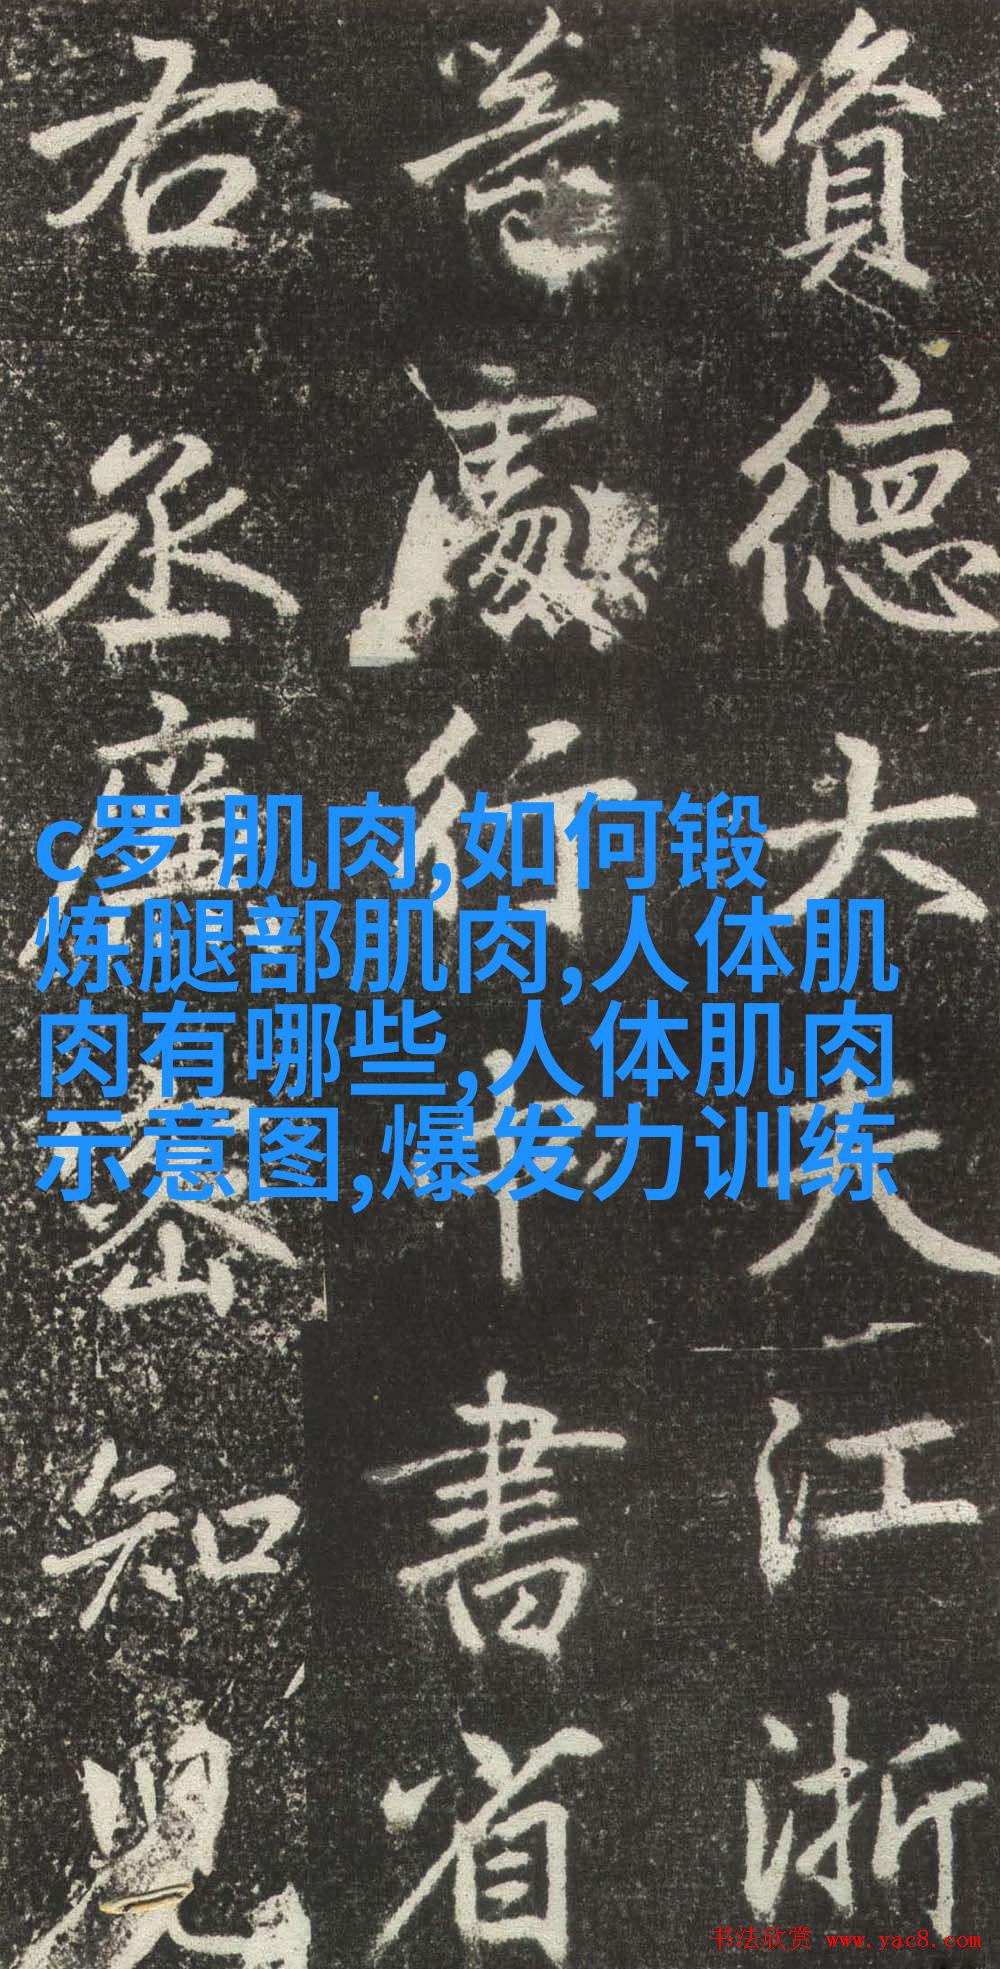 資德大夫江浙
等處行中書省
右丞知
c罗 肌肉,如何锻
炼腿部肌肉,人体肌
肉有哪些,人体肌肉
示意图,爆发力训练
书法欣赏 www.yac8.com